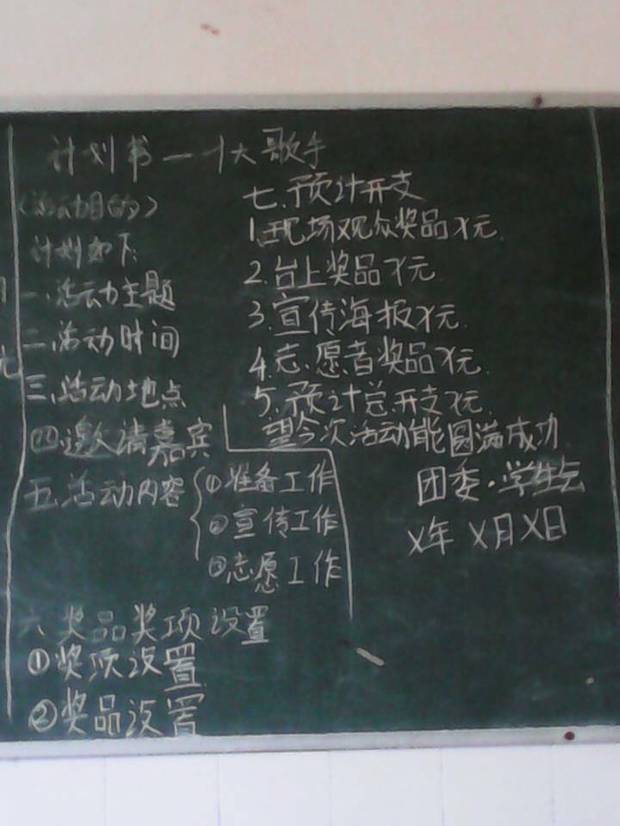 计划书一十大歌手
(活动目的)
计划如下:
一.活动主题
二.活动时间
三.活动地点
四.邀请嘉宾
五.活动内容
①准备工作
②宣传工作
③志愿工作
六.奖品奖项设置
①奖项设置
②奖品设置
七.预计开支
1.现场观众奖品X元.
2.台上奖品X元
3.宣传海报X元.
4.志愿者奖品X元.
5.预计总开支X元.
望今次活动能圆满成功
团委·学生会
X年X月X日